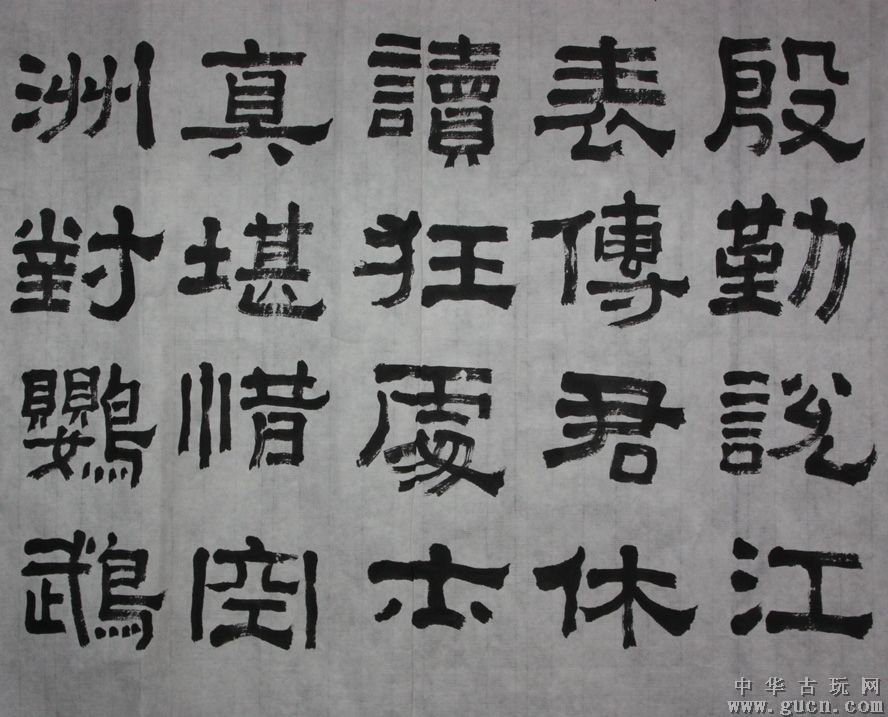 殷勤說江
表傳君休
讀狂處士
真堪惜空
洲對鸚鵡
中华古玩网
www.gucn.com